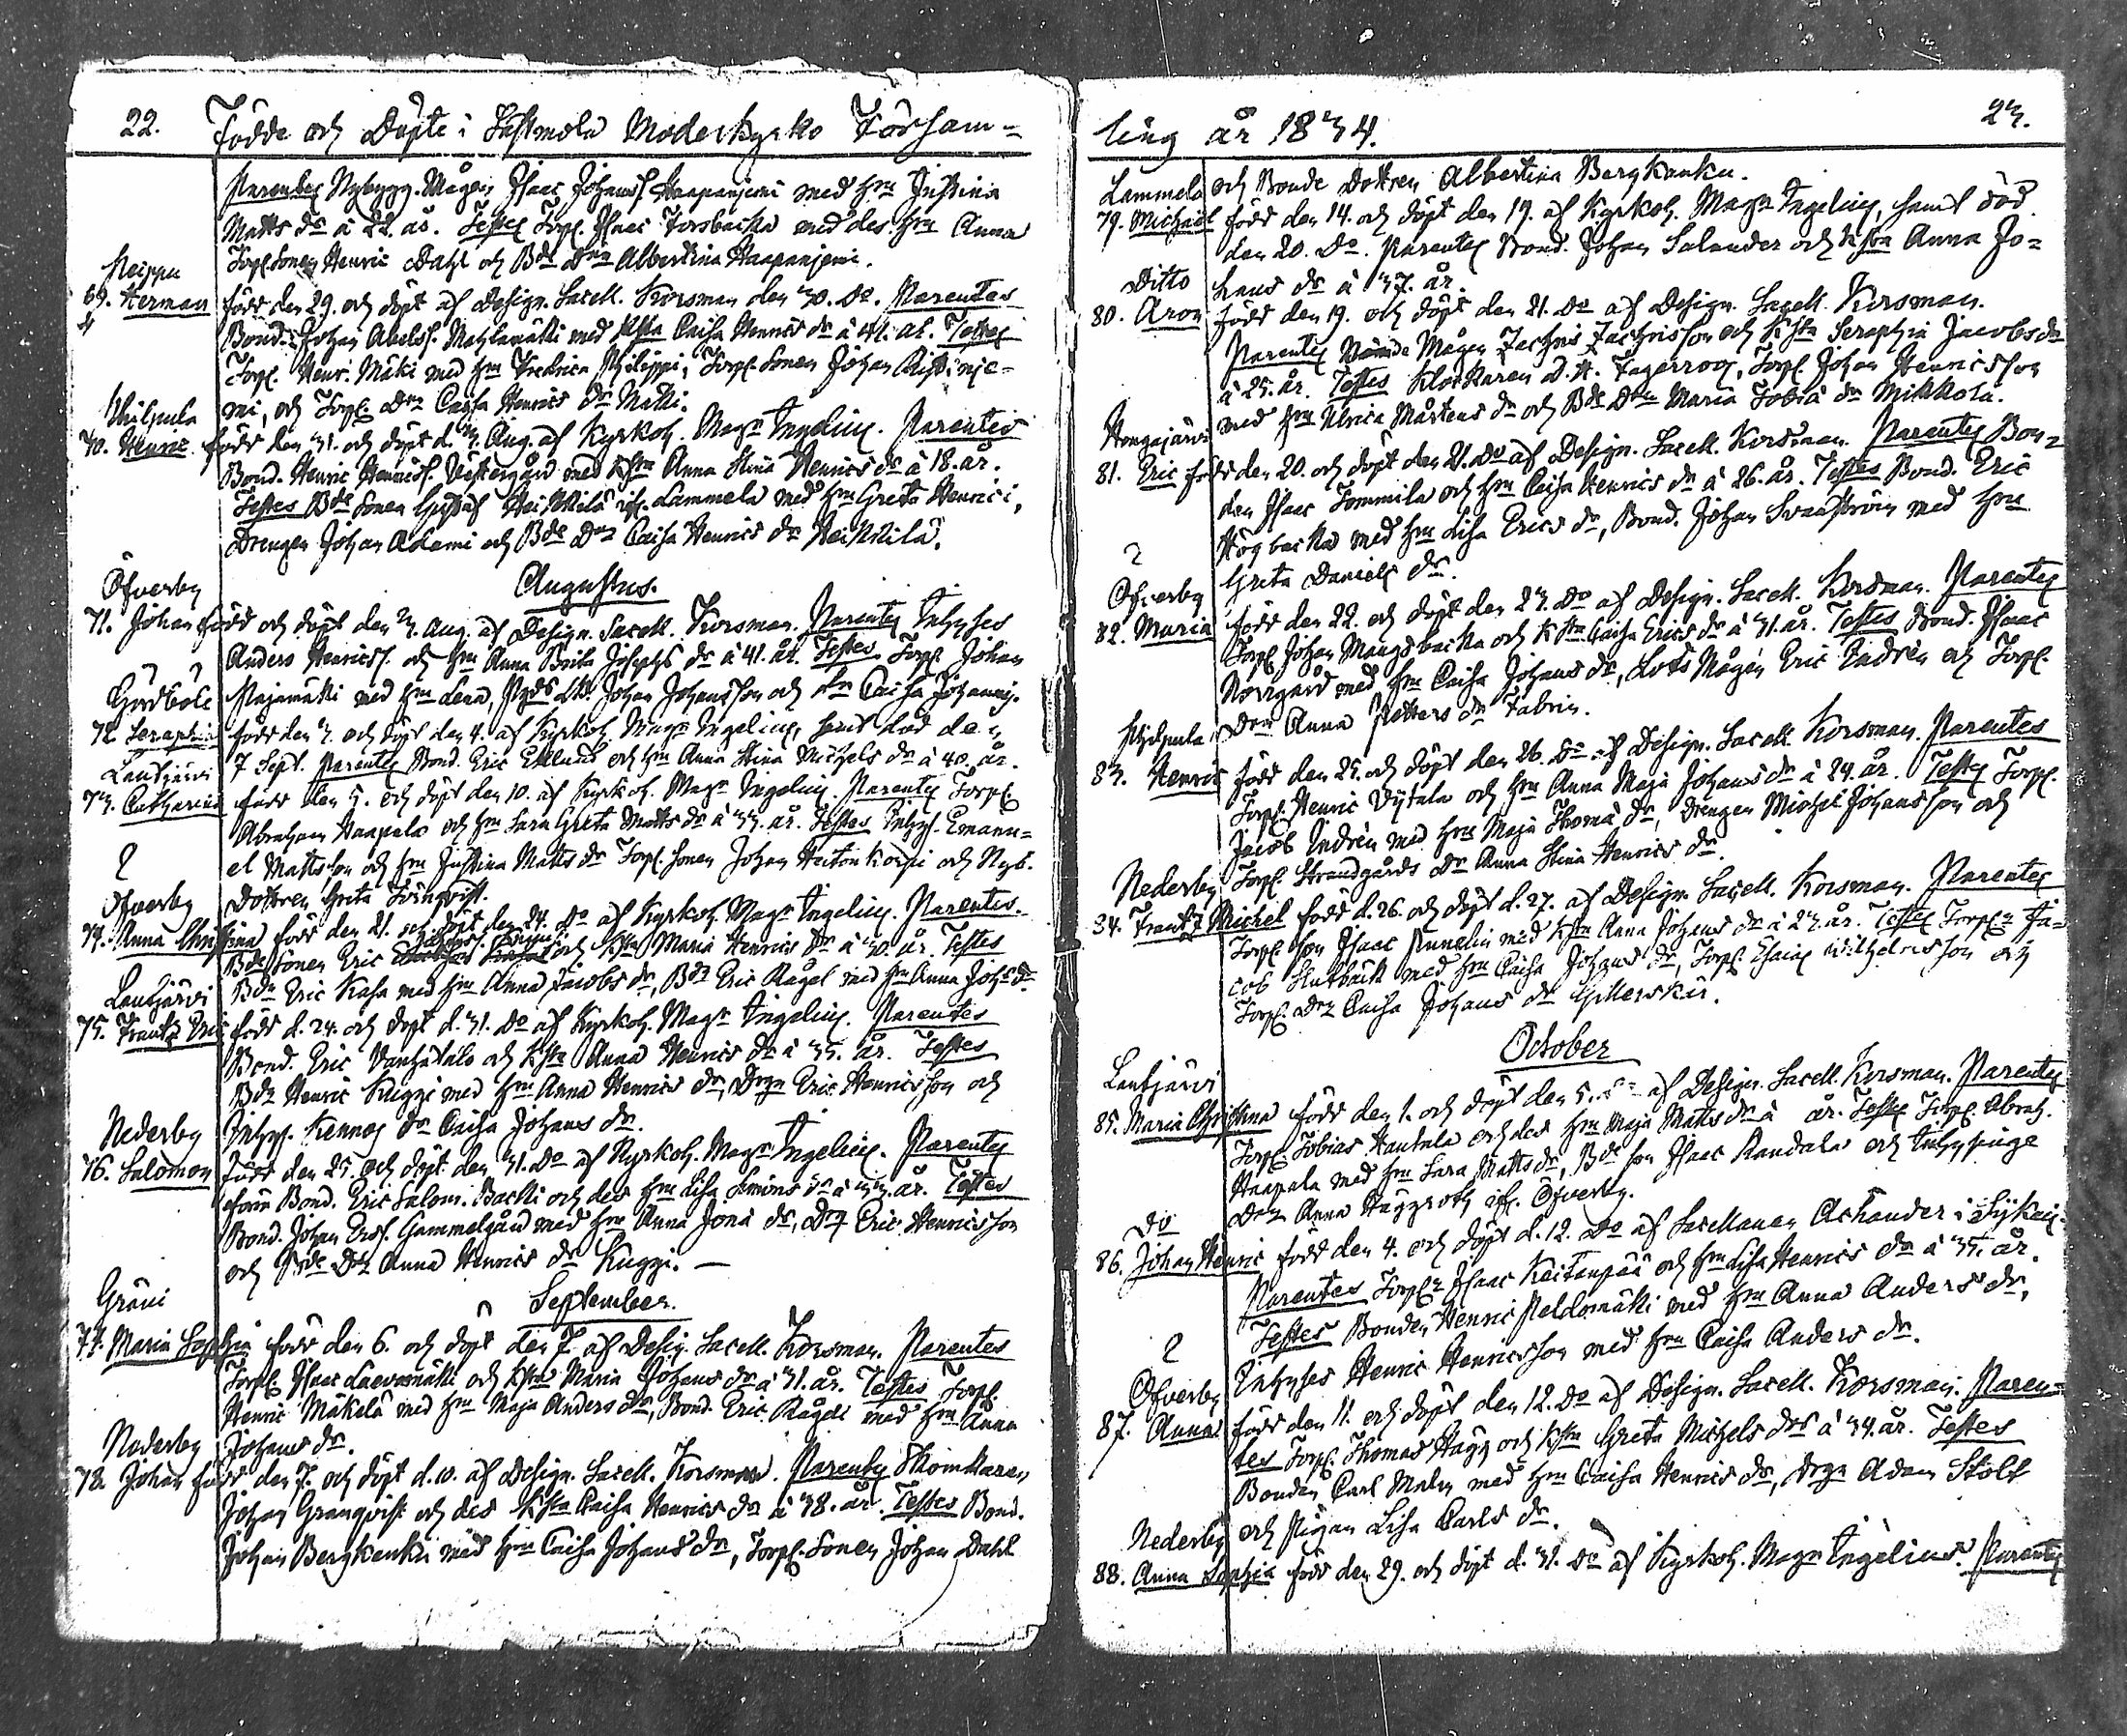 22. Födde och Döpte i Sastmola Moderkyrko Försam-
Parentes Nybygg. Mågen Isaac Johanss. Haapanjemi med Hm Justina
Matts dr à 22. år. Testes Torp. Isaac Forsbacka med des Hm Anna
Torp. Sonen Henric Dahl och Bde Dnn Albertina Haapanjemi.
Peippu
69. Herman född den 29. och döpt af Design. Sacell. Korsman den 30. Do. Parentes
Bond. Johan Abelss. Mahlamäki med Hsta Caisa Henrics dr à 41. år. Testes
Torp. Henr. Mäki med Hm Fredrica Philippi, Torp. Sonen Johan Ristinje-
mi, och Torp. Drn Caisa Henrics dr Mäki.
70. Henric född den 31. och döpt d. 3. Aug. af Kyrkoh. Magr Ingelius. Parentes
Bond. Henric Henricss. Västergård med Hm Anna Stina Henrics dr à 18. år.
Testes Bde Sonen Gustaf Heikkilä if. Lammela med Hm Greta Henrici,
Drengen Johan Adami och Bde Dnr Caisa Henrics dr Heikkilä.
Augustus.
Öfverby
71. Johan född och döpt den 3. Aug. af Design. Sacell. Korsman. Parentes Inhyses
Anders Henricss. och Hm Anna Brita Josephs dr à 41. år. Testes Torp. Johan
Majamäki med Hm Lena, Johan Johansson och Caisa Johannis.
Gårdböle
72. Seraphia född den 3. och döpt den 4. af Kyrkoh. Magr Ingelius, samt död den
7 Sept. Parentes Bond. Eric Eklund och Hm Anna Stina Michels dr à 40. år.
Lautjärvi
73. Catharina född den 5. och döpt den 10. af Kyrkoh. Magr Ingelius. Parentes Torp.
Abraham Haapala och Hm Sara Greta Matts dr à 33. år. Testes Inhys. Emanu-
el Mattsson och Hm Justina Matts dr Torp. Sonen Johan Heitonkorpi och Nyb.
Dottren Greta
Öfverby
74. Anna Christina född den 21. och döpt den 24. Do af Kyrkoh. Magr Ingelius. Parentes
Bde Sonen Eric och Hsta Maria Henrics dr à 30. år. Testes
Bdn Eric Kasa med Hm Anna Jacobs dr, Bdr Eric Rågel med Hm Anna Johs dr
Lautjärvi
75. Frantz Eric född d. 24. och döpt d. 31. Do af Kyrkoh. Magr Ingelius. Parentes
Bond. Eric Vanhatalo och Hsta Anna Henrics dr à 35. år. Testes
Bdr Henric Kuggi med Hm Anna Henrics dr, Drgn Eric Henricsson och
Inhys. dr Caisa Johans dr.
Nederby
76. Salomon född den 25. och döpt den 31. Do af Kyrkoh. Magr Ingelius. Parentes
Bond. Eric Salom. Backi och des Hm Lisa Simons dr à 33. år. Testes
Bond. Johan Erss. Gammelgård med Hm Anna Jona dr, Drg Eric Henricsson
och Bde Dr Anna Henrics dr Kuggi. —
September.
77. Maria Sophia född den 6. och döpt den 7. af Desig. Sacell. Korsman. Parentes
Torp. Isaac Laevasmäki och Hsta Maria Johans dr à 31. år. Testes Torp.
Henric Mäkelä med Hm Maja Anders dr, Bond. Eric Rågels med Hm Anna
Johans dr.
Nederby
78. Johan född den 7. och döpt d. 10. af Design. Sacell. Korsman. Parentes Skomkaren
Johan Granqvist och des Hsta Caisa Henrics dr à 38. år. Testes Bond.
Johan Bergkanki med Hm Caisa Johans dr, Torp. Sonen Johan Dahl
23.
ling år 1834.
och Bonde Dottren Albertina Bergkanku.
Lammela
79. Michael född den 14. och döpt den 19. af Kyrkoh. Magr Ingelius, samt död
den 20. Do. Parentes Bond. Johan Salander och Hsta Anna Jo-
hans dr à 37. år.
Ditto
80. Aron född den 19. och döpt den 21. Do af Design. Sacell. Korsman.
Parentes Bonde Mågen Zachris Zachrisson och Hsta Seraphia Jacobs dr
à 25. år. Testes Klockaren A. H. Fagerroos, Torp. Johan Henricsson
med Hm Ulrica Mårtens dr och Bde Drn Maria Tobiä dr Mikkola.
Hongajärvi
81. Eric född den 20. och döpt den 21. Do af Design. Sacell. Korsman. Parentes Bon-
den Isaac Tommila och Hm Caisa Henrics dr à 26. år. Testes Bond. Eric
Högbacka med Hm Lisa Erics dr, Bond. Johan Svanström med Hm
Greta Daniels dr.
Öfverby
82. Maria född den 22. och döpt den 23. Do af Design. Sacell. Korsman. Parentes
Torp. Johan Mangsbacka och Hsta Caisa Erics dr à 31. år. Testes Bond. Isaac
Norrgård med Hm Caisa Johans dr, Lots Mågen Eric Indrén och Torp.
Drn Anna Petters dr Fabrin.
83. Henric född den 25. och döpt den 26. Do af Design. Sacell. Korsman. Parentes
Torp. Henric Vytala och Hm Anna Maja Johans dr à 24. år. Testes Torp.
Jacob Indrén med Hm Maja Thoma dr, Drengen Michel Johansson och
Torp. Strandgårds dr Anna Stina Henrics dr.
Nederby
84. Frantz Michel född d. 26. och döpt d. 27. af Design. Sacell. Korsman. Parentes
Torp. Son Isaac Runelin med Hsta Anna Johans dr à 23. år. Testes Torpr Ja-
cob Slutbäck med Hm Caisa Johans dr, Torp. Esaias Wilhelmsson och
Torp. Drn Caisa Johans dr Gillerskär.
October
Lautjärvi
85. Maria Christina född den 1. och döpt den 5. Do af Design. Sacell. Korsman. Parentes
Torp. Tobias Hautala och des Hm Maja Matts dr à år. Testes Torp. Abrah.
Haapala med Hm Sara Matts dr, Bde Son Isaac Randala och Inhysinge
Drn Anna Häggroth if. Öfverby.
Do
86. Johan Henric född den 4. och döpt d. 12. Do af Sacellanen Achander i Sykais.
Parentes Torpr Isaac Keitanpää och Hm Lisa Henrics dr à 35. år.
Testes Bonden Henric Peldomäki med Hm Anna Anders dr,
Inhyses Henric Henricsson med Hm Caisa Anders dr.
Öfverby
87. Anna född den 11. och döpt den 12. Do af Design. Sacell. Korsman. Paren-
tes Torp. Thomas Hägg och Hsta Greta Michels dr à 34. år. Testes
Bonden Carl Malm med Hm Caisa Henrics dr, Drgn Adam Stolt
och Pigan Lisa Carls dr.
Nederby
88. Anna Sophia född den 29. och döpt d. 31. Do af Kyrkoh. Magr Ingelius. Parentes